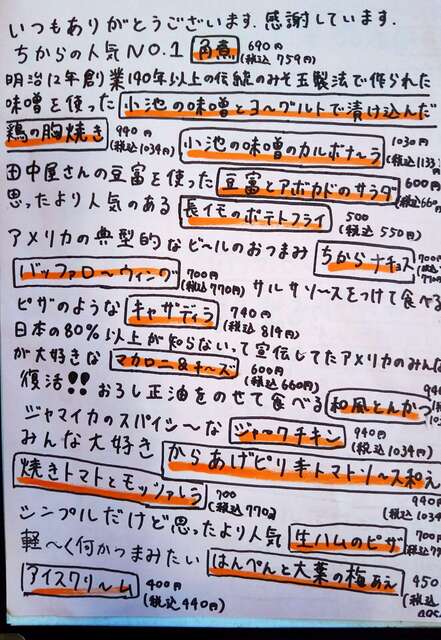 いつもありがとうございます。感謝しています。
ちからの人気NO.1 角煮 690円(税込759円)
明治12年創業140年以上の伝統のみそ玉製法で作られた
味噌を使った 小池の味噌とヨーグルトで漬け込んだ
鶏の胸焼き 940円(税込1034円) 小池の味噌のカルボナーラ 1030円(税込1133
田中屋さんの豆富を使った 豆富とアボカドのサラダ 600円(税込660
思ったより人気のある 長イモのポテトフライ 500(税込550円)
アメリカの典型的なビールのおつまみ ちからナチョス 700円(税込770円
バッファローウィング 700円(税込770円) サルサソースをつけて食べる
ピザのような キャサディラ 740円(税込814円)
日本の80%以上が知らないって宣伝してたアメリカのみんな
が大好きな マカロニ&チーズ 600円(税込660円)
復活!! おろし正油をのせて食べる 和風とんかつ
ジャマイカのスパイシーな ジャークチキン 940円(税込1034円)
みんな大好き からあげピリ辛トマトソース和え 940円(税込1034
焼きトマトとモッツァレラ 700(税込770円)
シンプルだけど思ったより人気 生ハムのピザ 700円
軽〜く何かつまみたい はんぺんと大葉の梅あえ 450
アイスクリーム 400円(税込440円)